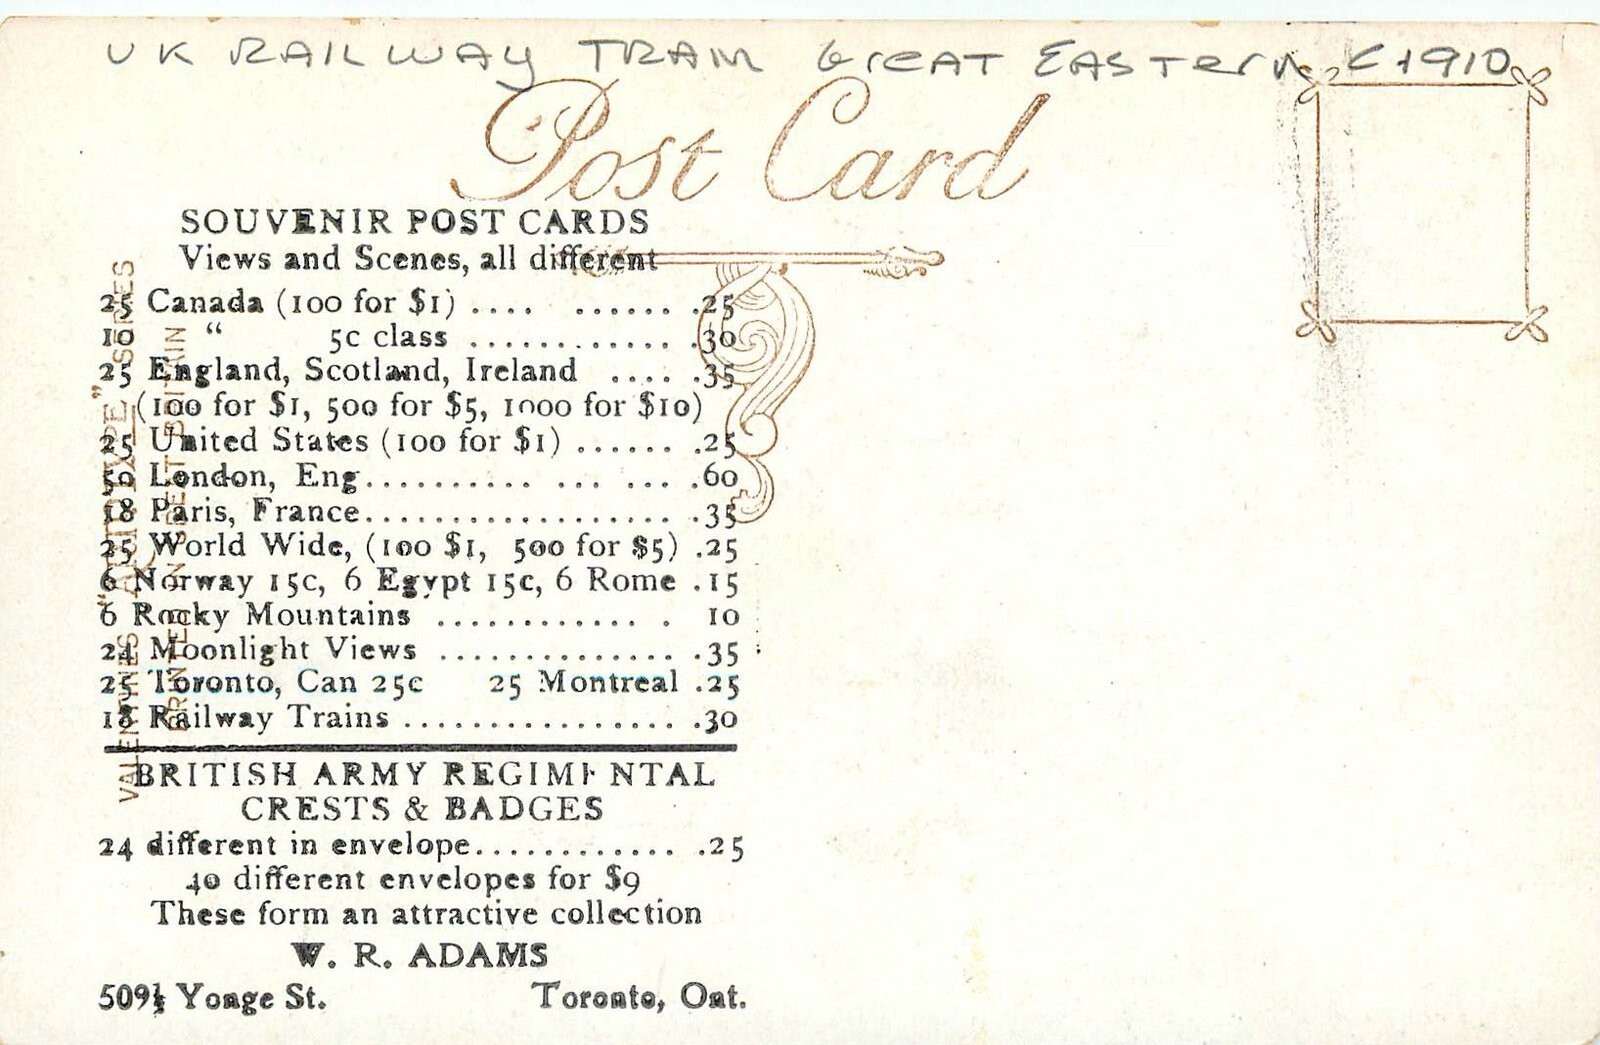 UK RAILWAY TRAM GREAT EASTERN C1910
Post Card
SOUVENIR POST CARDS
Views and Scenes, all different
25 Canada (100 for $1) .... ...... .25
10 “ 5c class ............ .30
25 England, Scotland, Ireland .... .35
(100 for $1, 500 for $5, 1000 for $10)
25 United States (100 for $1) ...... .25
50 London, Eng.......... ... ... .60
18 Paris, France.................. .35
25 World Wide, (100 $1, 500 for $5) .25
6 Norway 15c, 6 Egypt 15c, 6 Rome .15
6 Rocky Mountains ............ . 10
24 Moonlight Views ............... .35
25 Toronto, Can 25c 25 Montreal .25
18 Railway Trains ................. .30
BRITISH ARMY REGIMENTAL
CRESTS & BADGES
24 different in envelope............ .25
40 different envelopes for $9
These form an attractive collection
W. R. ADAMS
509½ Yonge St. Toronto, Ont.
VALENTINES "ARTOTYPE" SERIES
PRINTED IN GREAT BRITAIN